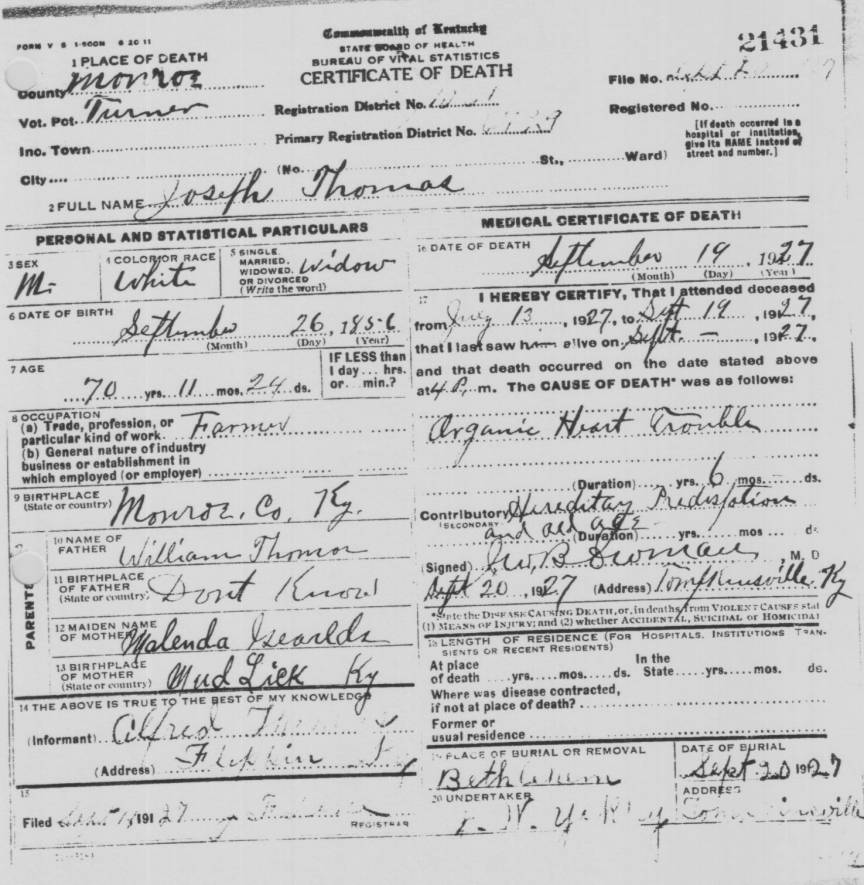 FORM V S 1-500M 6 20 11
Commonwealth of Kentucky
STATE BOARD OF HEALTH
BUREAU OF VITAL STATISTICS
CERTIFICATE OF DEATH
21431
1 PLACE OF DEATH
County Monroe
Vot. Pct. Turner
Inc. Town
City
Registration District No.
Primary Registration District No.
File No.
Registered No.
[If death occurred in a
hospital or institution,
give its NAME instead of
street and number.]
(No. St., Ward)
2 FULL NAME Joseph Thomas
PERSONAL AND STATISTICAL PARTICULARS
3 SEX
M.
4 COLOR OR RACE
White
5 SINGLE,
MARRIED,
WIDOWED,
OR DIVORCED
(Write the word)
Widow
6 DATE OF BIRTH
September 26, 1856
(Month) (Day) (Year)
7 AGE
70 yrs. 11 mos. 24 ds.
IF LESS than
1 day... hrs.
or... min.?
8 OCCUPATION
(a) Trade, profession, or
particular kind of work Farmer
(b) General nature of industry
business or establishment in
which employed (or employer)
9 BIRTHPLACE
(State or country)
Monroe. Co, Ky.
PARENTS
10 NAME OF
FATHER
William Thomas
11 BIRTHPLACE
OF FATHER
(State or country)
Dont Know
12 MAIDEN NAME
OF MOTHER
Malenda
13 BIRTHPLACE
OF MOTHER
(State or country)
Mud Lick Ky
14 THE ABOVE IS TRUE TO THE BEST OF MY KNOWLEDGE
(Informant) Alfred
(Address) Flippin Ky
15
Filed 191 27
REGISTRAR
MEDICAL CERTIFICATE OF DEATH
16 DATE OF DEATH
September 19, 1927
(Month) (Day) (Year)
17
I HEREBY CERTIFY, That I attended deceased
from July 13, 1927, to Sept 19, 1927,
that I last saw him alive on Sept. —, 1927,
and that death occurred on the date stated above
at 4 P. m. The CAUSE OF DEATH* was as follows:
Organic Heart Trouble
(Duration) yrs. 6 mos. ds.
Contributory Hereditary
(SECONDARY)
and old age
(Duration) yrs. mos ds
(Signed) M. D
Sept 20, 1927 (Address) Tompkinsville Ky
*State the DISEASE CAUSING DEATH, or, in deaths from VIOLENT CAUSES stat
(1) MEANS OF INJURY; and (2) whether ACCIDENTAL, SUICIDAL or HOMICIDAL
18 LENGTH OF RESIDENCE (FOR HOSPITALS, INSTITUTIONS TRAN-
SIENTS OR RECENT RESIDENTS)
At place
of death yrs. mos. ds.
In the
State yrs. mos. ds.
Where was disease contracted,
if not at place of death?
Former or
usual residence
19 PLACE OF BURIAL OR REMOVAL
Bethlehem
DATE OF BURIAL
Sept 20 1927
20 UNDERTAKER
ADDRESS
Tompkinsville